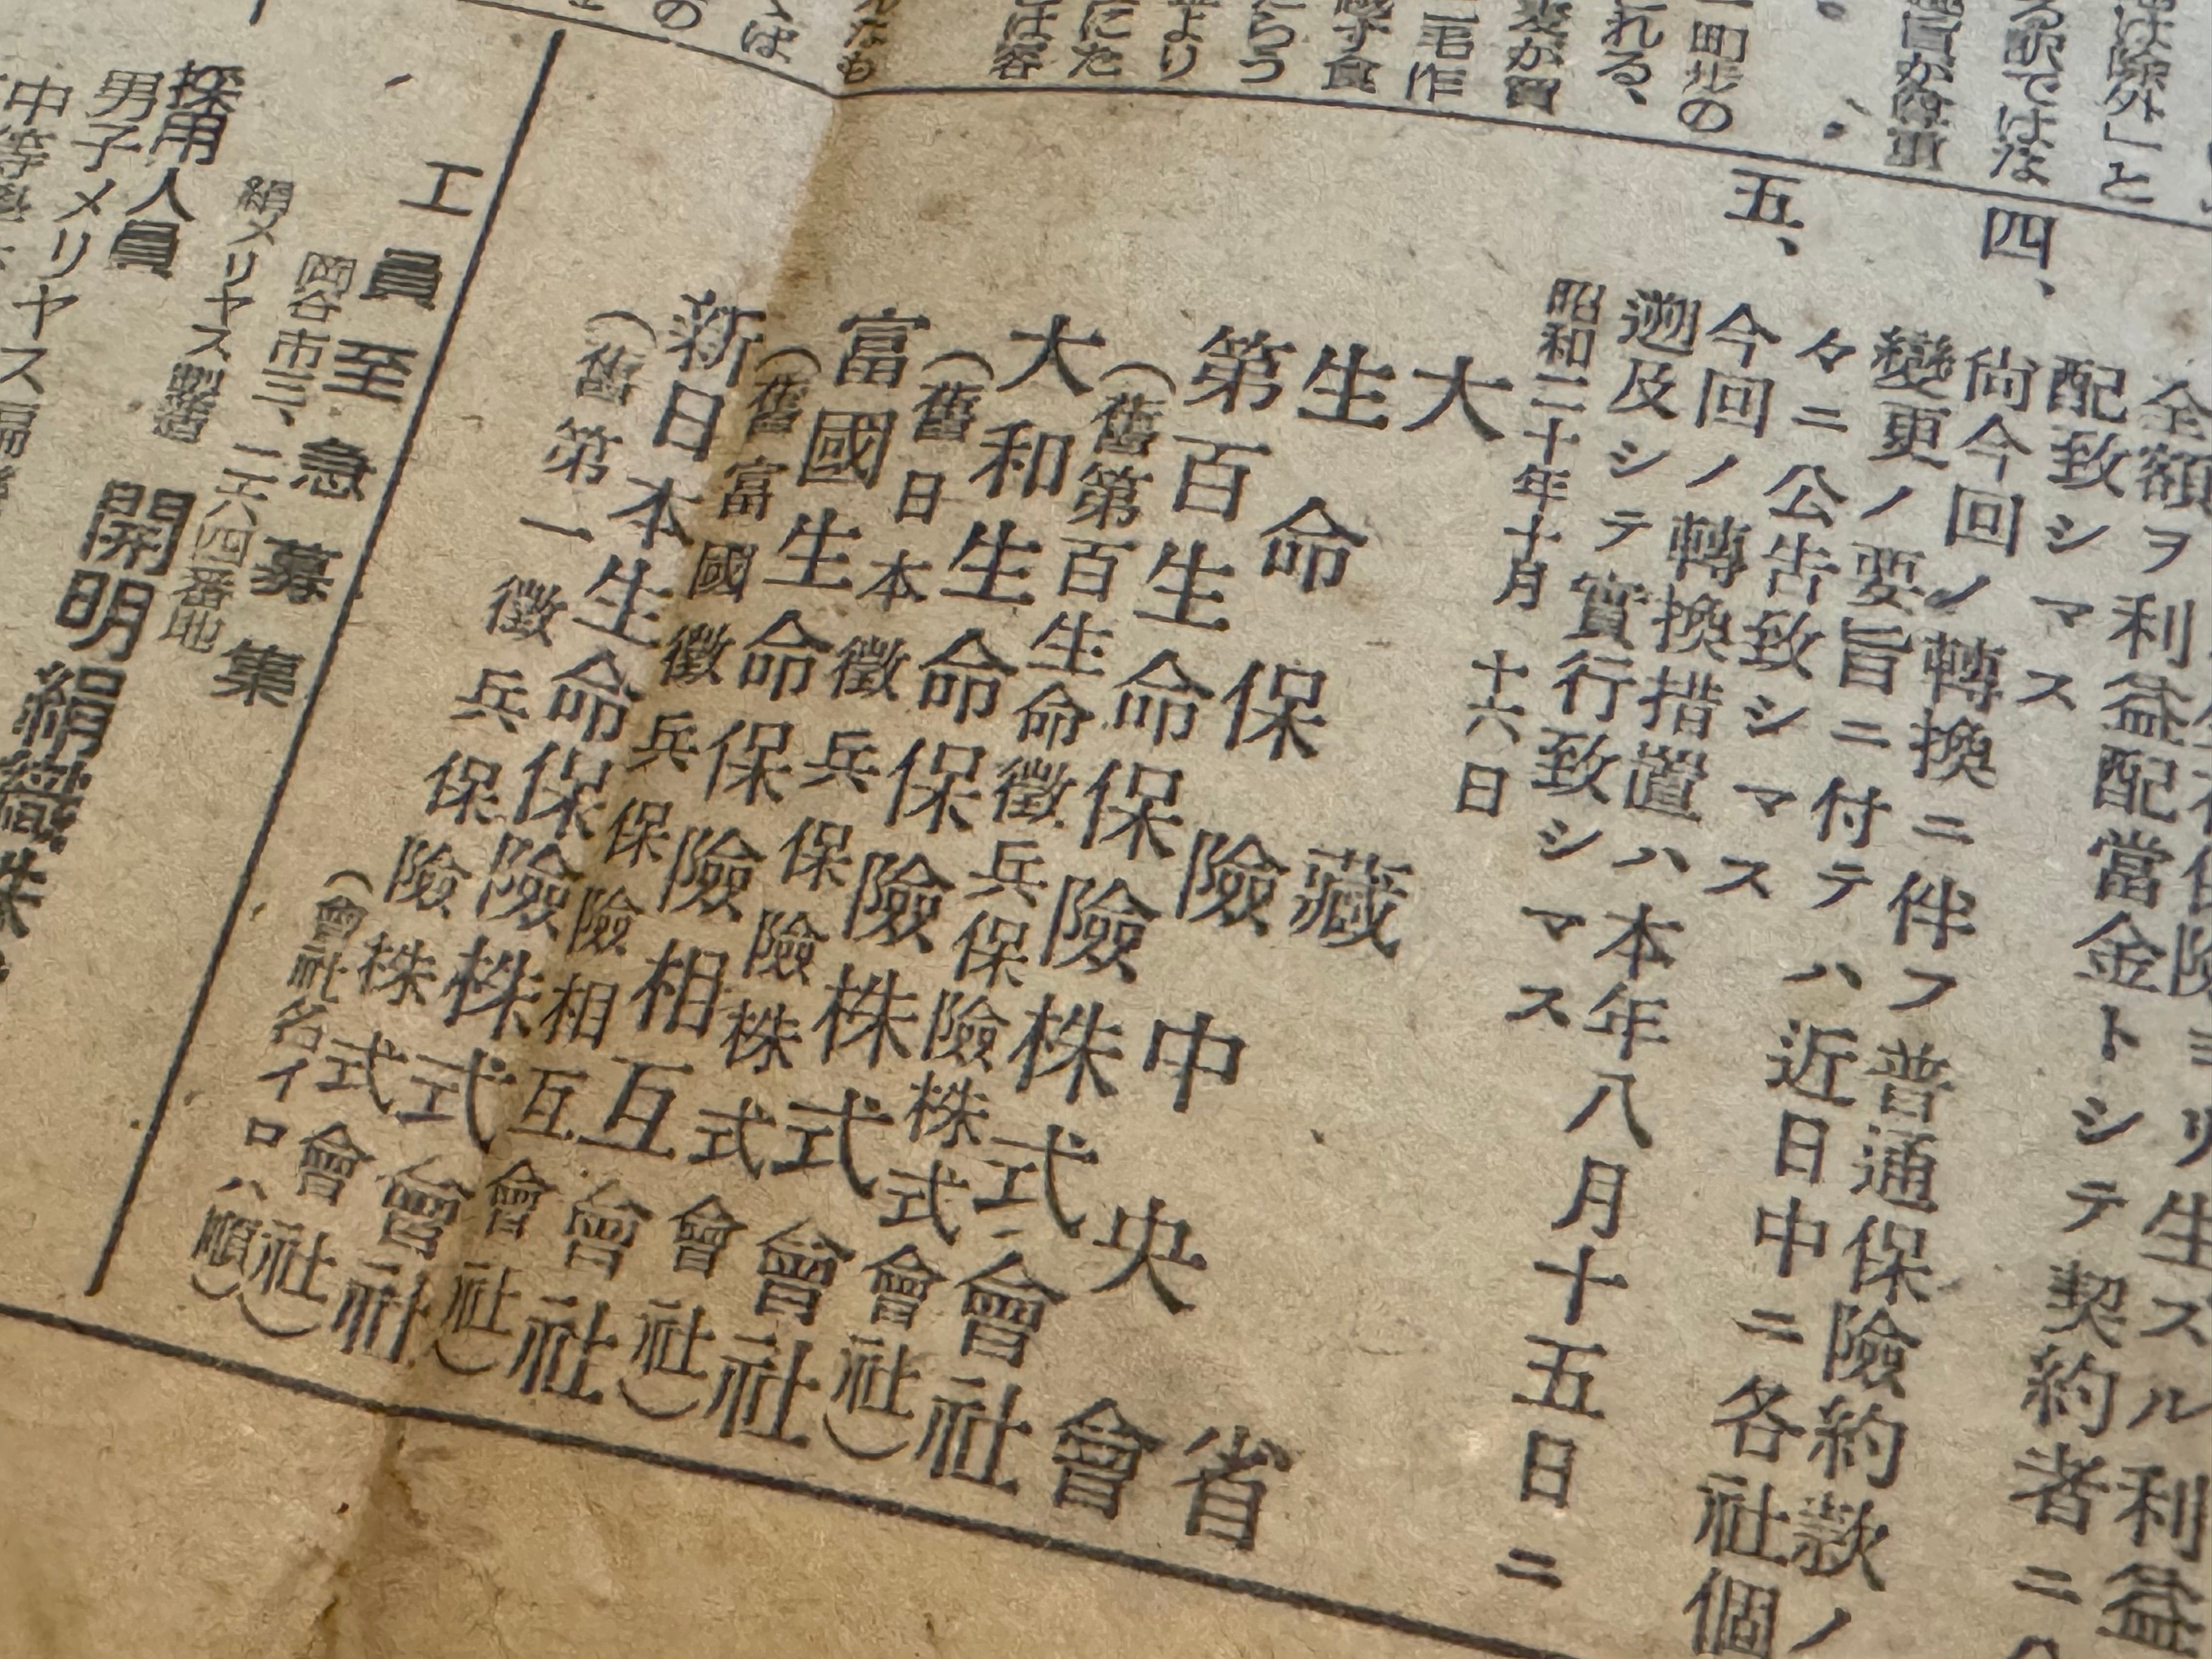 は除外」と
る訳ではな
町歩の
れる、
毛作
より
にた
は容
全額ヲ利益配當金トシテ契約者ニ
配致シマス
四、
尚今回ノ轉換ニ伴フ普通保險約款ノ
變更ノ要旨ニ付テハ近日中ニ各社個
々ニ公告致シマス
五、
今回ノ轉換措置ハ本年八月十五日ニ
遡及シテ實行致シマス
昭和二十年十月十六日
大藏省
生命保險中央會
第百生命保險株式會社
(舊第百生命徴兵保險株式會社)
大和生命保險株式會社
(舊日本徴兵保險株式會社)
富國生命保險相互會社
(舊富國徴兵保險相互會社)
新日本生命保險株式會社
(舊第一徴兵保險株式會社)
(會社名イロハ順)
工員至急募集
岡谷市三、二六四番地
絹メリヤス製造
開明絹織株
採用人員
男子メリヤス
中等